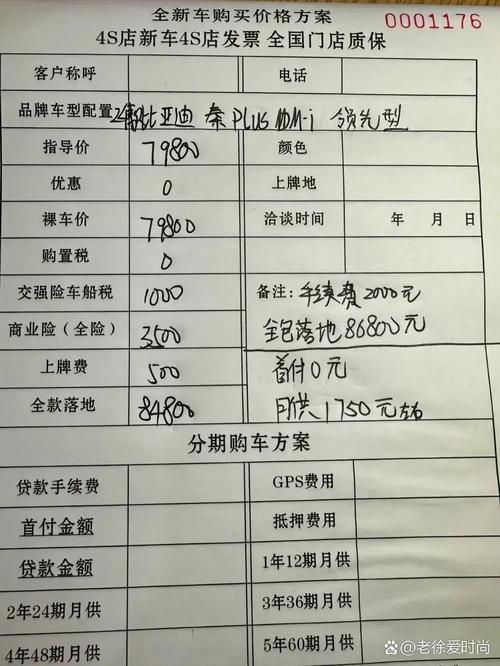 全新车购买价格方案
0001176
4S店新车4S店发票 全国门店质保
客户称呼 电话
品牌车型配置 比亚迪 秦PLUS DM-i 领先型
指导价 79800 颜色
优惠 0 上牌地
裸车价 79800 洽谈时间 年 月 日
购置税 0
交强险车船税 1000 备注: 手续费2000元
商业险（全险） 3500 全包落地86800元
上牌费 500 首付0元
全款落地 84800 月供1750元左右
分期购车方案
贷款手续费 GPS费用
首付金额 抵押费用
贷款金额 1年12期月供
2年24期月供 3年36期月供
4年48期月供 5年60期月供
@老徐爱时尚